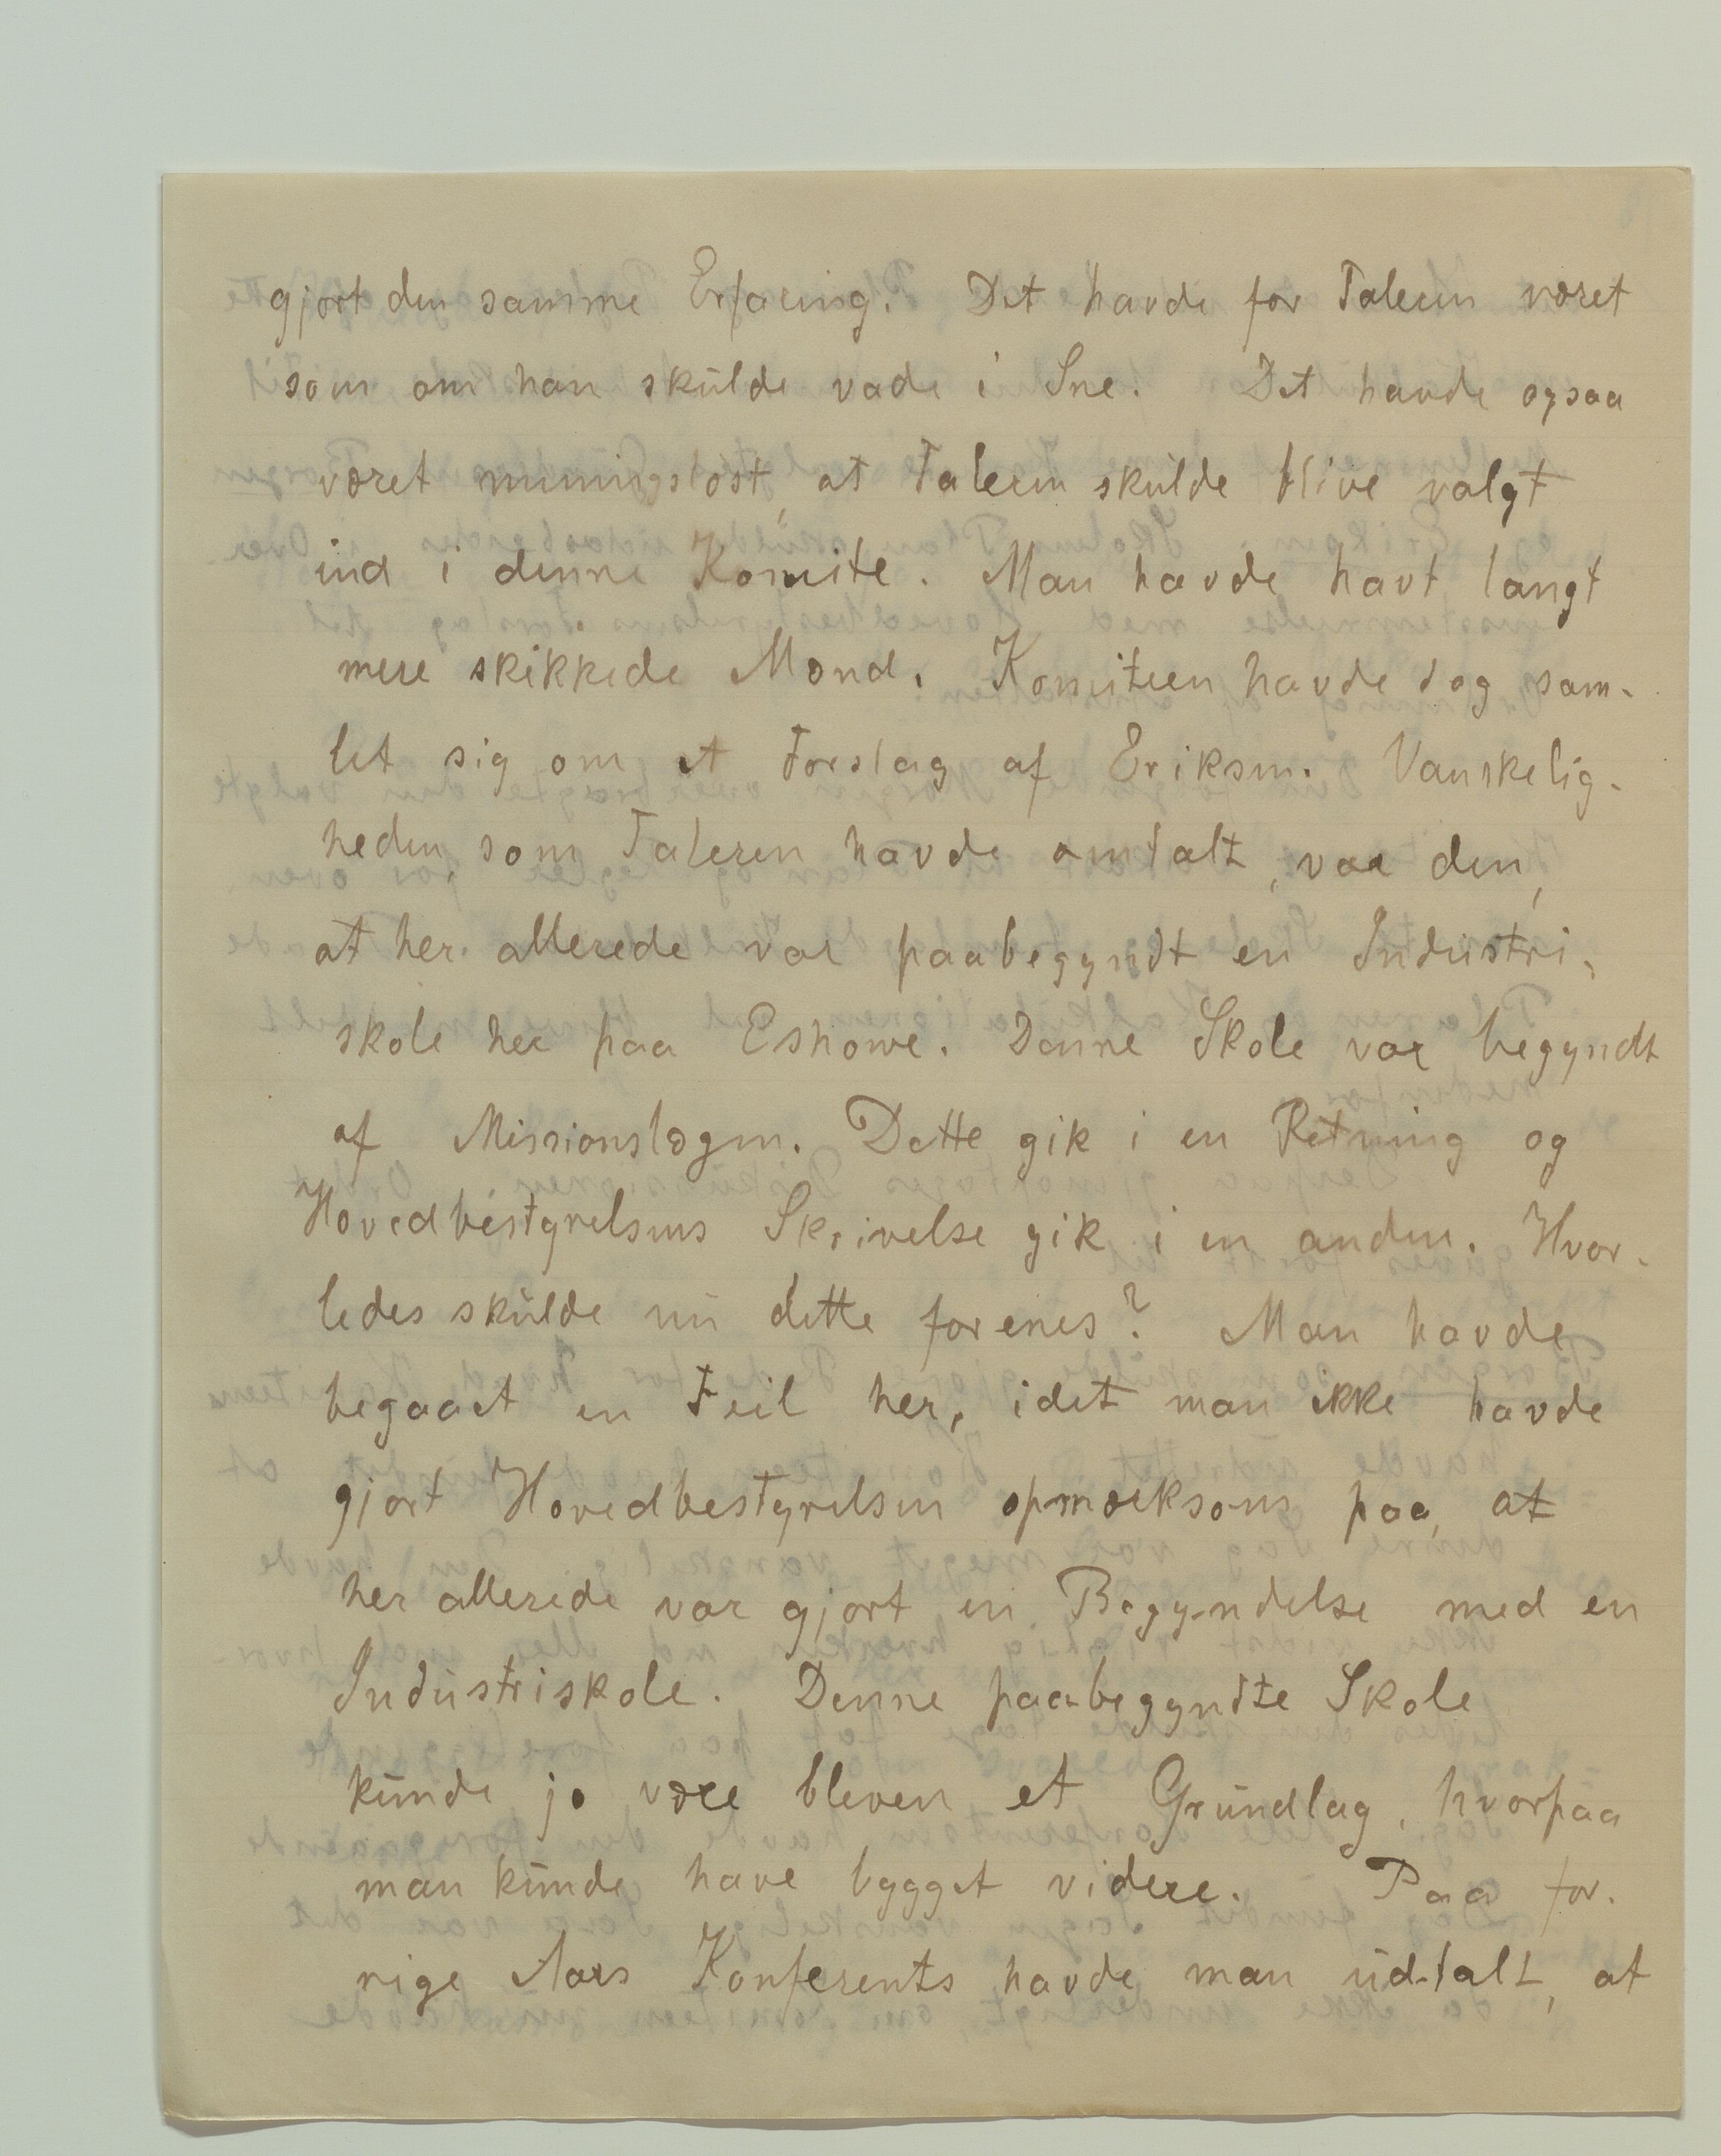 gjort den samme Erfaring. Det havde for Taleren været
som om han skulde vade i Sne. Det havde ogsaa
været meningsløst, at Taleren skulde blive valgt
ind i denne Komite. Man havde havt langt
mere skikkede Mænd. Komiteen havde dog sam-
let sig om et Forslag af Eriksen. Vanskelig-
heden som Taleren havde omtalt, var den,
at her allerede var paabegyndt en Industri-
skole her paa Eshowe. Denne Skole var begyndt
af Missionslægen. Dette gik i en Retning og
Hovedbestyrelsens Skrivelse gik i en anden. Hvor-
ledes skulde nu dette forenes? Man havde
begaaet en Feil her, idet man ikke havde
gjort Hovedbestyrelsen opmærksom paa, at
her allerede var gjort en Begyndelse med en
Industriskole. Denne paabegyndte Skole
kunde jo være bleven et Grundlag, hvorpaa
man kunde have bygget videre. Paa for-
rige Aars Konferents havde man udtalt, at